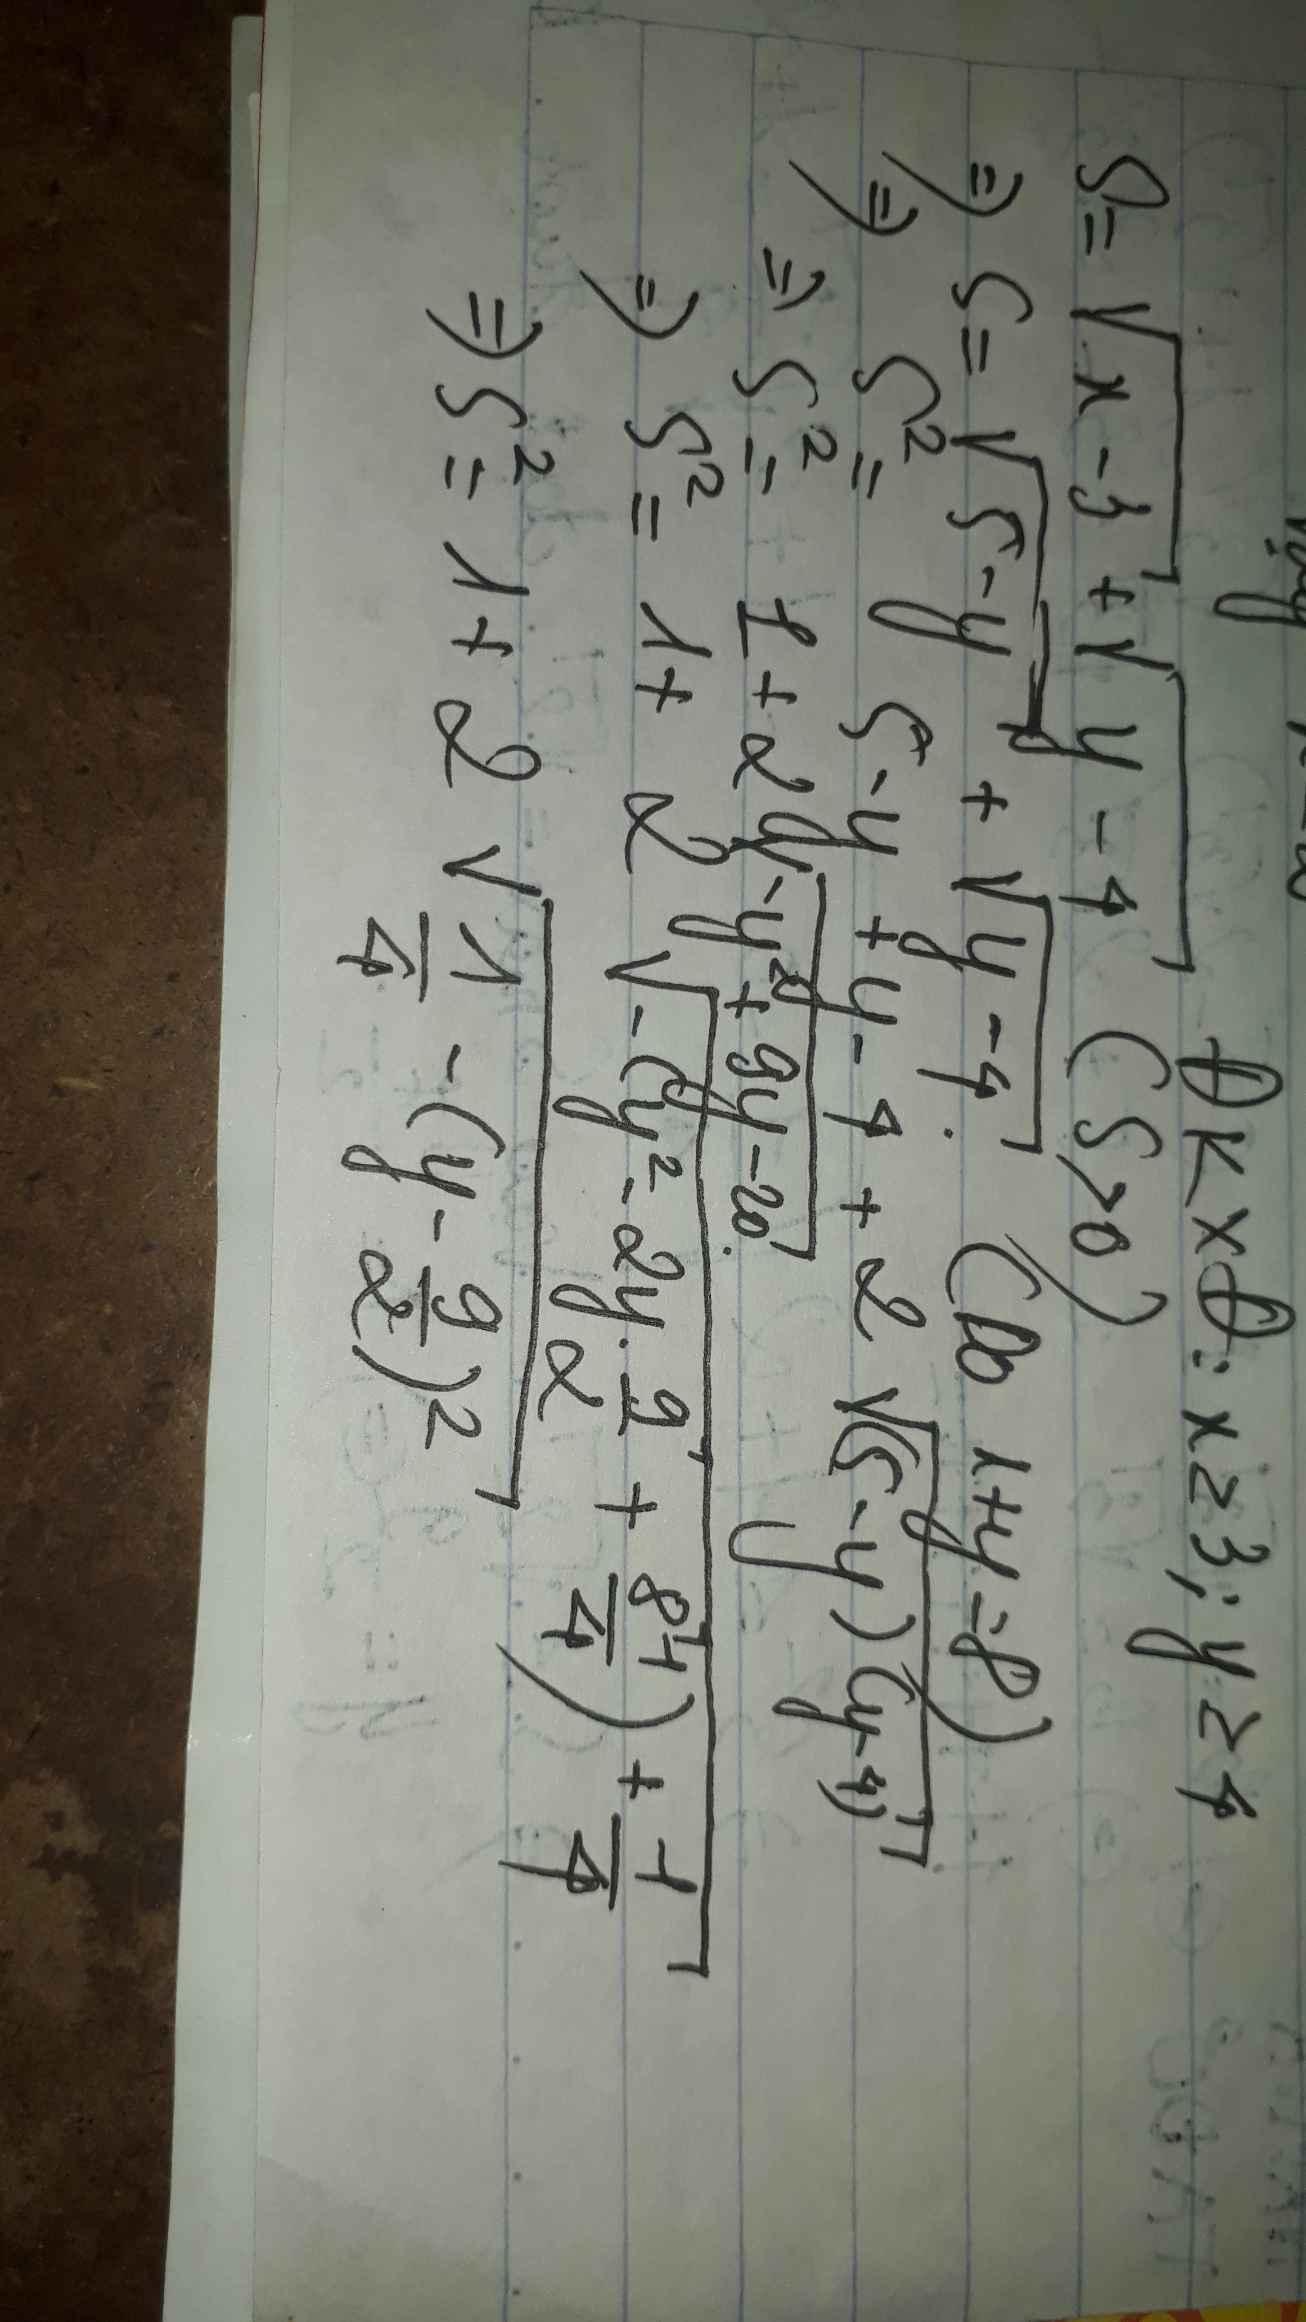 ĐKXĐ: x ≥ 3; y ≥ 4
S = √(x - 3) + √(y - 4) (S > 0)
=> S = √(5 - y) + √(y - 4). (Do x + y = 8)
=> S² = 5 - y + y - 4 + 2√((5 - y)(y - 4))
=> S² = 1 + 2√(-y² + 9y - 20)
=> S² = 1 + 2√(-(y² - 2y.9/2 + 81/4) + 1/4)
=> S² = 1 + 2√(1/4 - (y - 9/2)²)